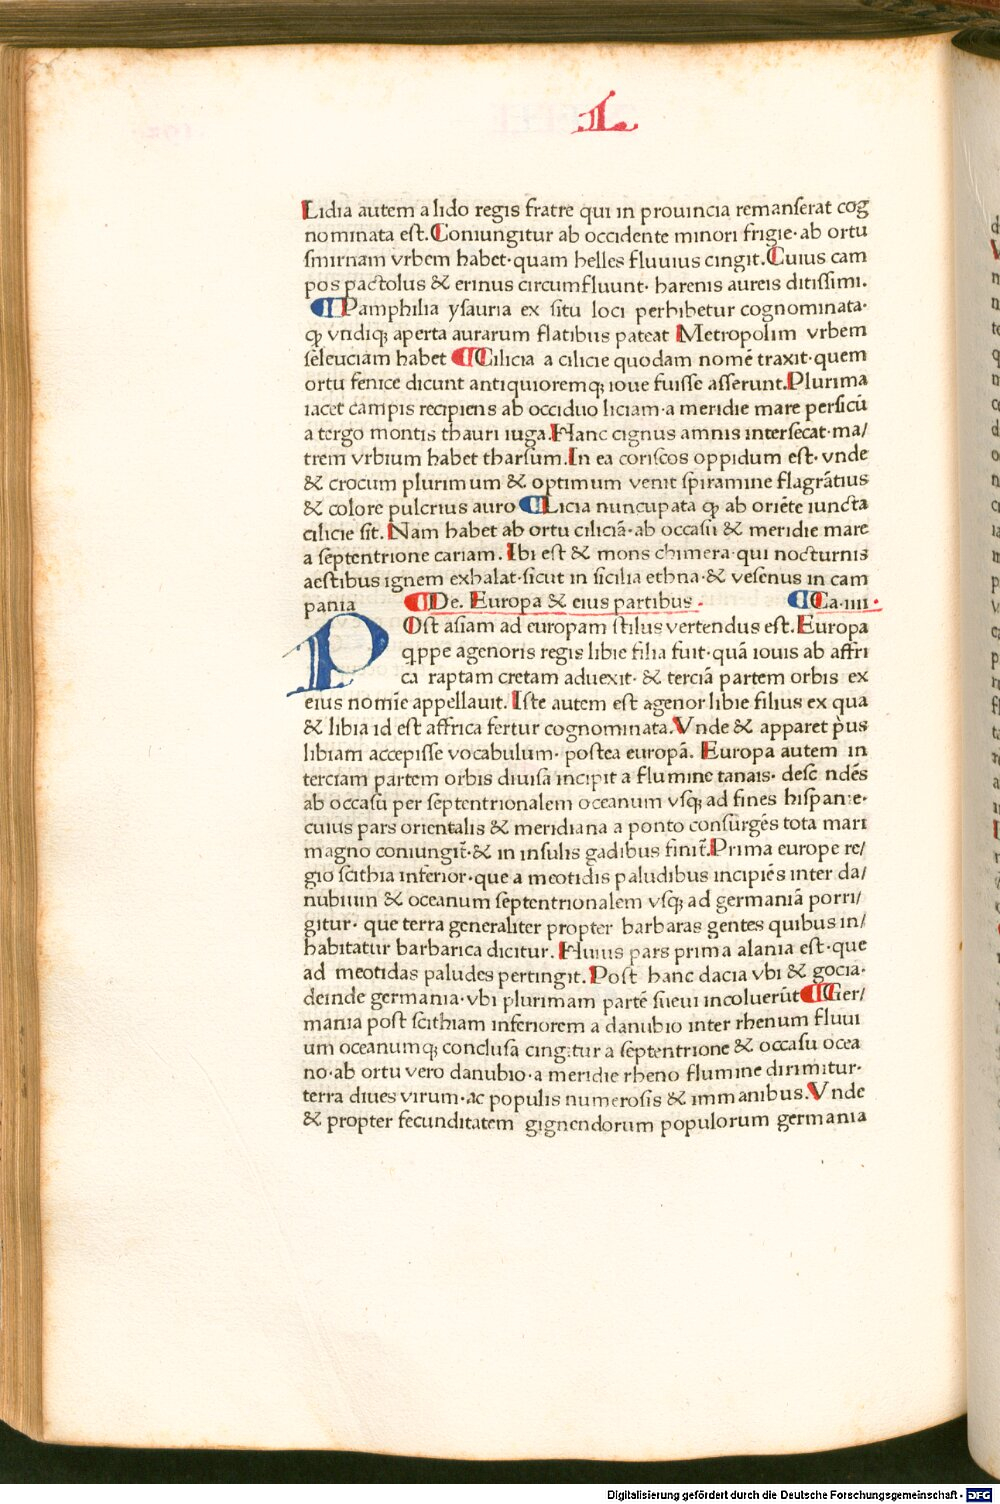 L
Lidia autem a lido regis fratre qui in prouincia remanſerat cog
nominata eſt. Coniungitur ab occidente minori frigie· ab ortu
ſmirnam vrbem habet· quam helles fluuius cingit. Cuius cam
pos pactolus & erinus circumfluunt· harenis aureis ditiſſimi.
¶ Pamphilia yſauria ex ſitu loci perhibetur cognominata·
ꝙ vndiqꝫ aperta aurarum flatibus pateat Metropolim vrbem
ſeleuciam habet ¶ Cilicia a cilicie quodam nomē traxit· quem
ortu fenice dicunt antiquioremqꝫ ioue fuiſſe aſſerunt. Plurima
iacet campis recipiens ab occiduo liciam· a meridie mare perſicū
a tergo montis thauri iuga. Hanc cignus amnis interſecat· ma/
trem vrbium habet tharſum. In ea coriſcos oppidum eſt· vnde
& crocum plurimum & optimum venit ſpiramine flagrātius
& colore pulcrius auro ¶ Licia nuncupata ꝙ ab oriēte iuncta
cilicie ſit. Nam habet ab ortu ciliciā· ab occaſu & meridie mare
a ſeptentrione cariam. Ibi eſt & mons chimera· qui nocturnis
aeſtibus ignem exhalat· ſicut in ſicilia ethna· & veſenus in cam
pania ¶ De. Europa & eius partibus. ¶ Ca. iiii.
POſt aſiam ad europam ſtilus vertendus eſt. Europa
qꝓpe agenoris regis libie filia fuit· quā iouis ab affri
ca raptam cretam aduexit· & terciā partem orbis ex
eius nomīe appellauit. Iſte autem eſt agenor libie filius ex qua
& libia id eſt affrica fertur cognominata. Vnde & apparet pꝰus
libiam accepiſſe vocabulum· poſtea europā. Europa autem in
terciam partem orbis diuiſa incipit a flumine tanais· deſc ndēs
ab occaſu per ſeptentrionalem oceanum vſqꝫ ad fines hiſpanie·
cuius pars orientalis & meridiana a ponto conſurgēs tota mari
magno coniungit̄· & in inſulis gadibus finit̄. Prima europe re/
gio ſcithia inferior· que a meotidis paludibus incipiēs inter da/
nubium & oceanum ſeptentrionalem vſqꝫ ad germaniā porri/
gitur· que terra generaliter propter barbaras gentes quibus in/
habitatur barbarica dicitur. Huius pars prima alania eſt· que
ad meotidas paludes pertingit. Poſt hanc dacia vbi & gocia·
deinde germania· vbi plurimam partē ſueui incoluerūt ¶ Ger/
mania poſt ſcithiam inferiorem a danubio inter rhenum fluui
um oceanumqꝫ concluſa cingitur a ſeptentrione & occaſu ocea
no· ab ortu vero danubio· a meridie rheno flumine dirimitur·
terra diues virum· ac populis numeroſis & immanibus. Vnde
& propter fecunditatem gignendorum populorum germania
Digitalisierung gefördert durch die Deutsche Forschungsgemeinschaft - DFG